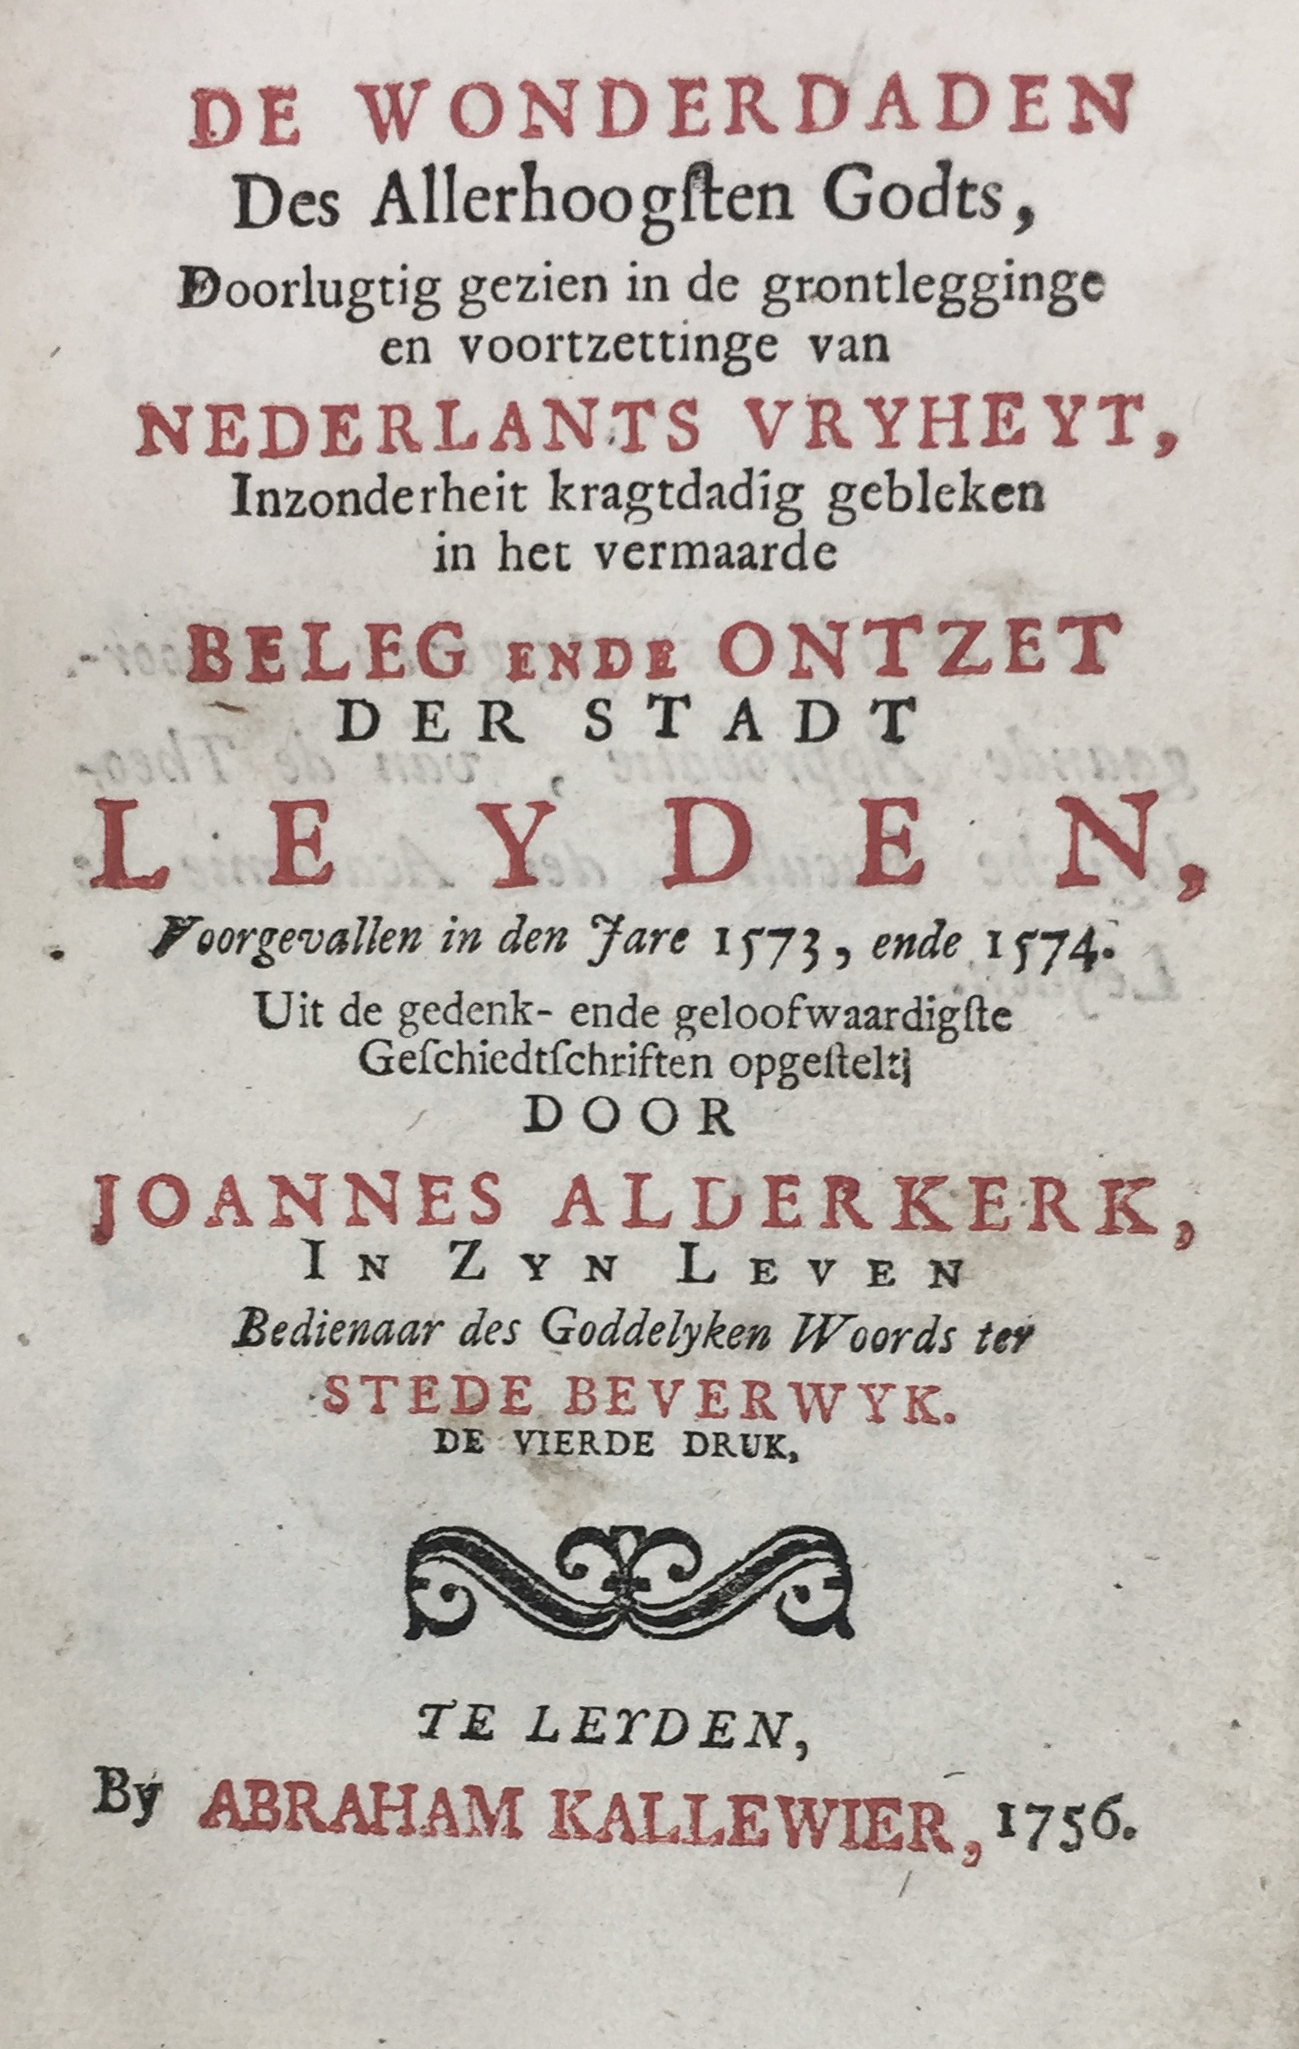 DE WONDERDADEN
Des Allerhoogſten Godts,
Doorlugtig gezien in de grontlegginge
en voortzettinge van
NEDERLANTS VRYHEYT,
Inzonderheit kragtdadig gebleken
in het vermaarde
BELEG ENDE ONTZET
DER STADT
LEYDEN,
Voorgevallen in den Jare 1573, ende 1574.
Uit de gedenk- ende geloofwaardigſte
Geſchiedtſchriften opgeſtelt;
DOOR
JOANNES ALDERKERK,
IN ZYN LEVEN
Bedienaar des Goddelyken Woords ter
STEDE BEVERWYK.
DE VIERDE DRUK,
TE LEYDEN,
By ABRAHAM KALLEWIER, 1756.